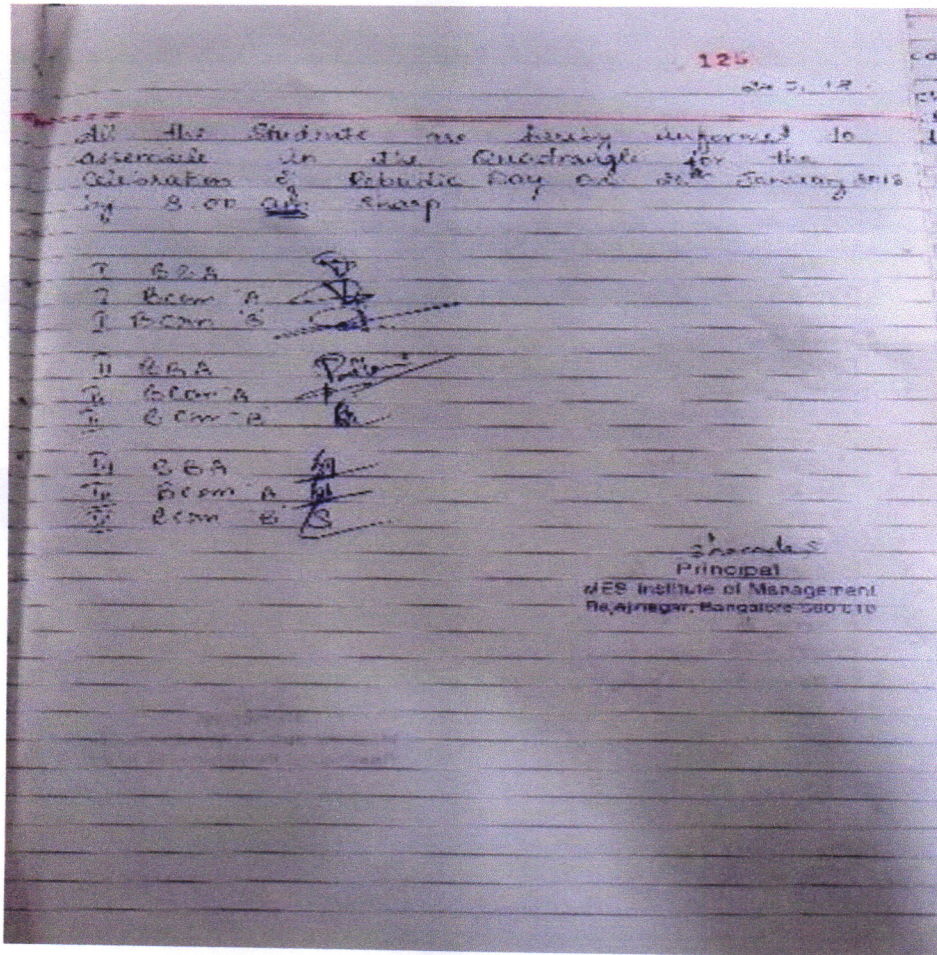 125
All the Students are hereby informed to
assemble in the Quadrangle for the
Celebration of Republic Day on 26th January 2018
by 8.00 am sharp
I BBA
I Bcom 'A
I Bcom 'B'
II BBA
II Bcom 'A
II Bcom 'B
III BBA
III Bcom 'A
III Bcom 'B'
Sharada S
Principal
MES Institute of Management
Rajajinagar, Bangalore-560 010